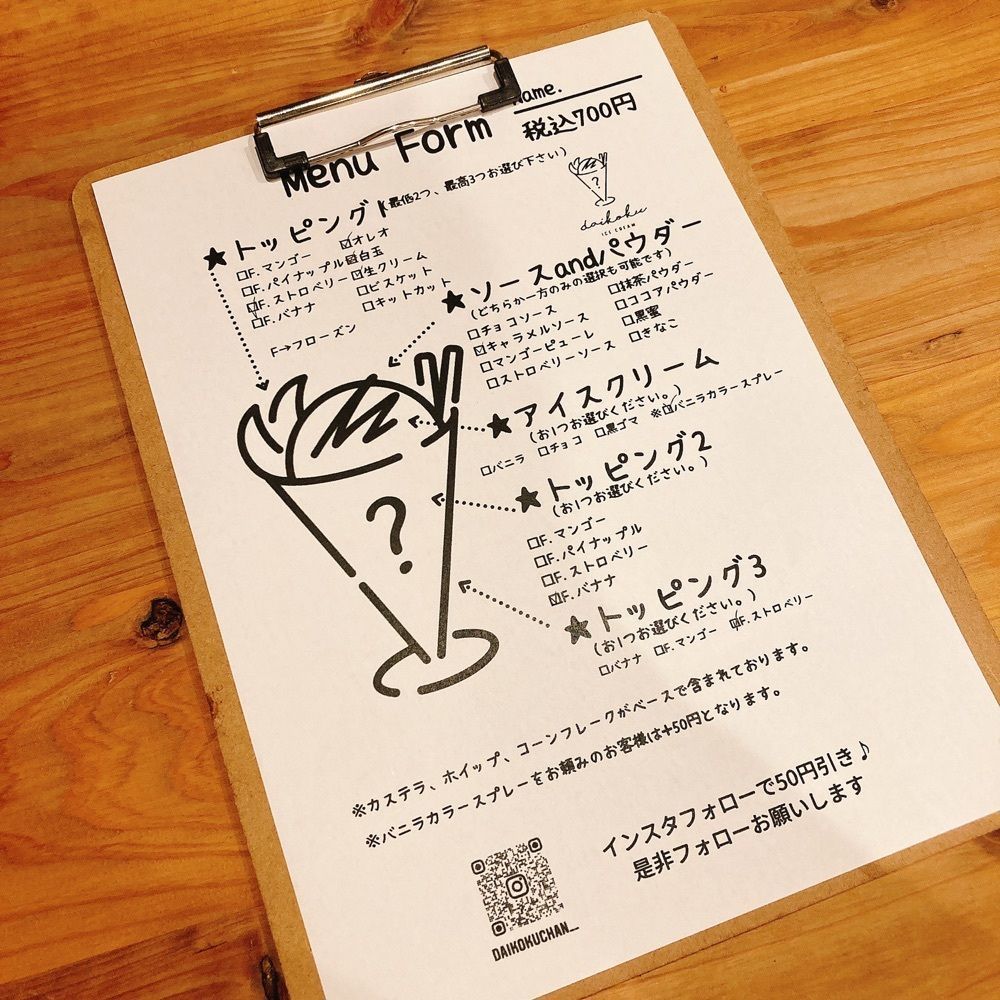 Name.
Menu Form
税込700円
★トッピング1
(最低2つ、最高3つお選び下さい)
□F.マンゴー ☑オレオ
□F.パイナップル ☑白玉
☑F.ストロベリー ☑生クリーム
☑F.バナナ □ビスケット
□キットカット
F→フローズン
daikoku
ICE CREAM
★ソースandパウダー
(どちらか一方のみの選択も可能です)
□チョコソース □抹茶パウダー
☑キャラメルソース □ココアパウダー
□マンゴーピューレ □黒蜜
□ストロベリーソース □きなこ
★アイスクリーム
(お1つお選びください。)
□バニラ □チョコ □黒ゴマ ※☑バニラカラースプレー
★トッピング2
(お1つお選びください。)
□F.マンゴー
□F.パイナップル
□F.ストロベリー
☑F.バナナ
★トッピング3
(お1つお選びください。)
□バナナ □F.マンゴー ☑F.ストロベリー
?
※カステラ、ホイップ、コーンフレークがベースで含まれております。
※バニラカラースプレーをお頼みのお客様は+50円となります。
インスタフォローで50円引き♪
是非フォローお願いします
DAIKOKUCHAN__